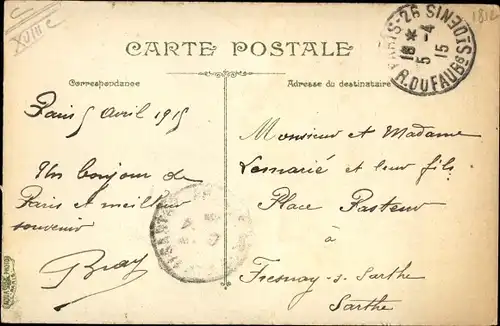 XVIII e
1812
CARTE POSTALE
Correspondance
Adresse du destinataire
PARIS-26 R. DU FAUBG ST DENIS
18 * -4
5 15
Paris 5 Avril 1915
Un bonjour de
Paris et meilleur
souvenir
Bray
Monsieur et Madame
Lemarié et leur fils
Place Pasteur
à
Fresnay-s-Sarthe
Sarthe